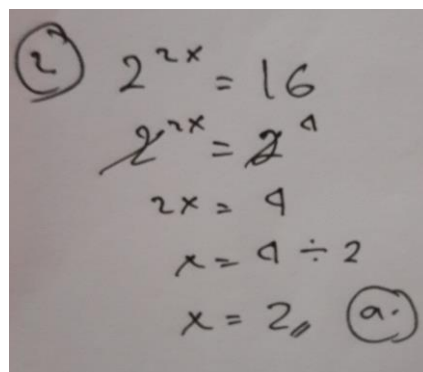 2 2^2x = 16
2^2x = 2^4
2x = 4
x = 4 ÷ 2
x = 2,, a.